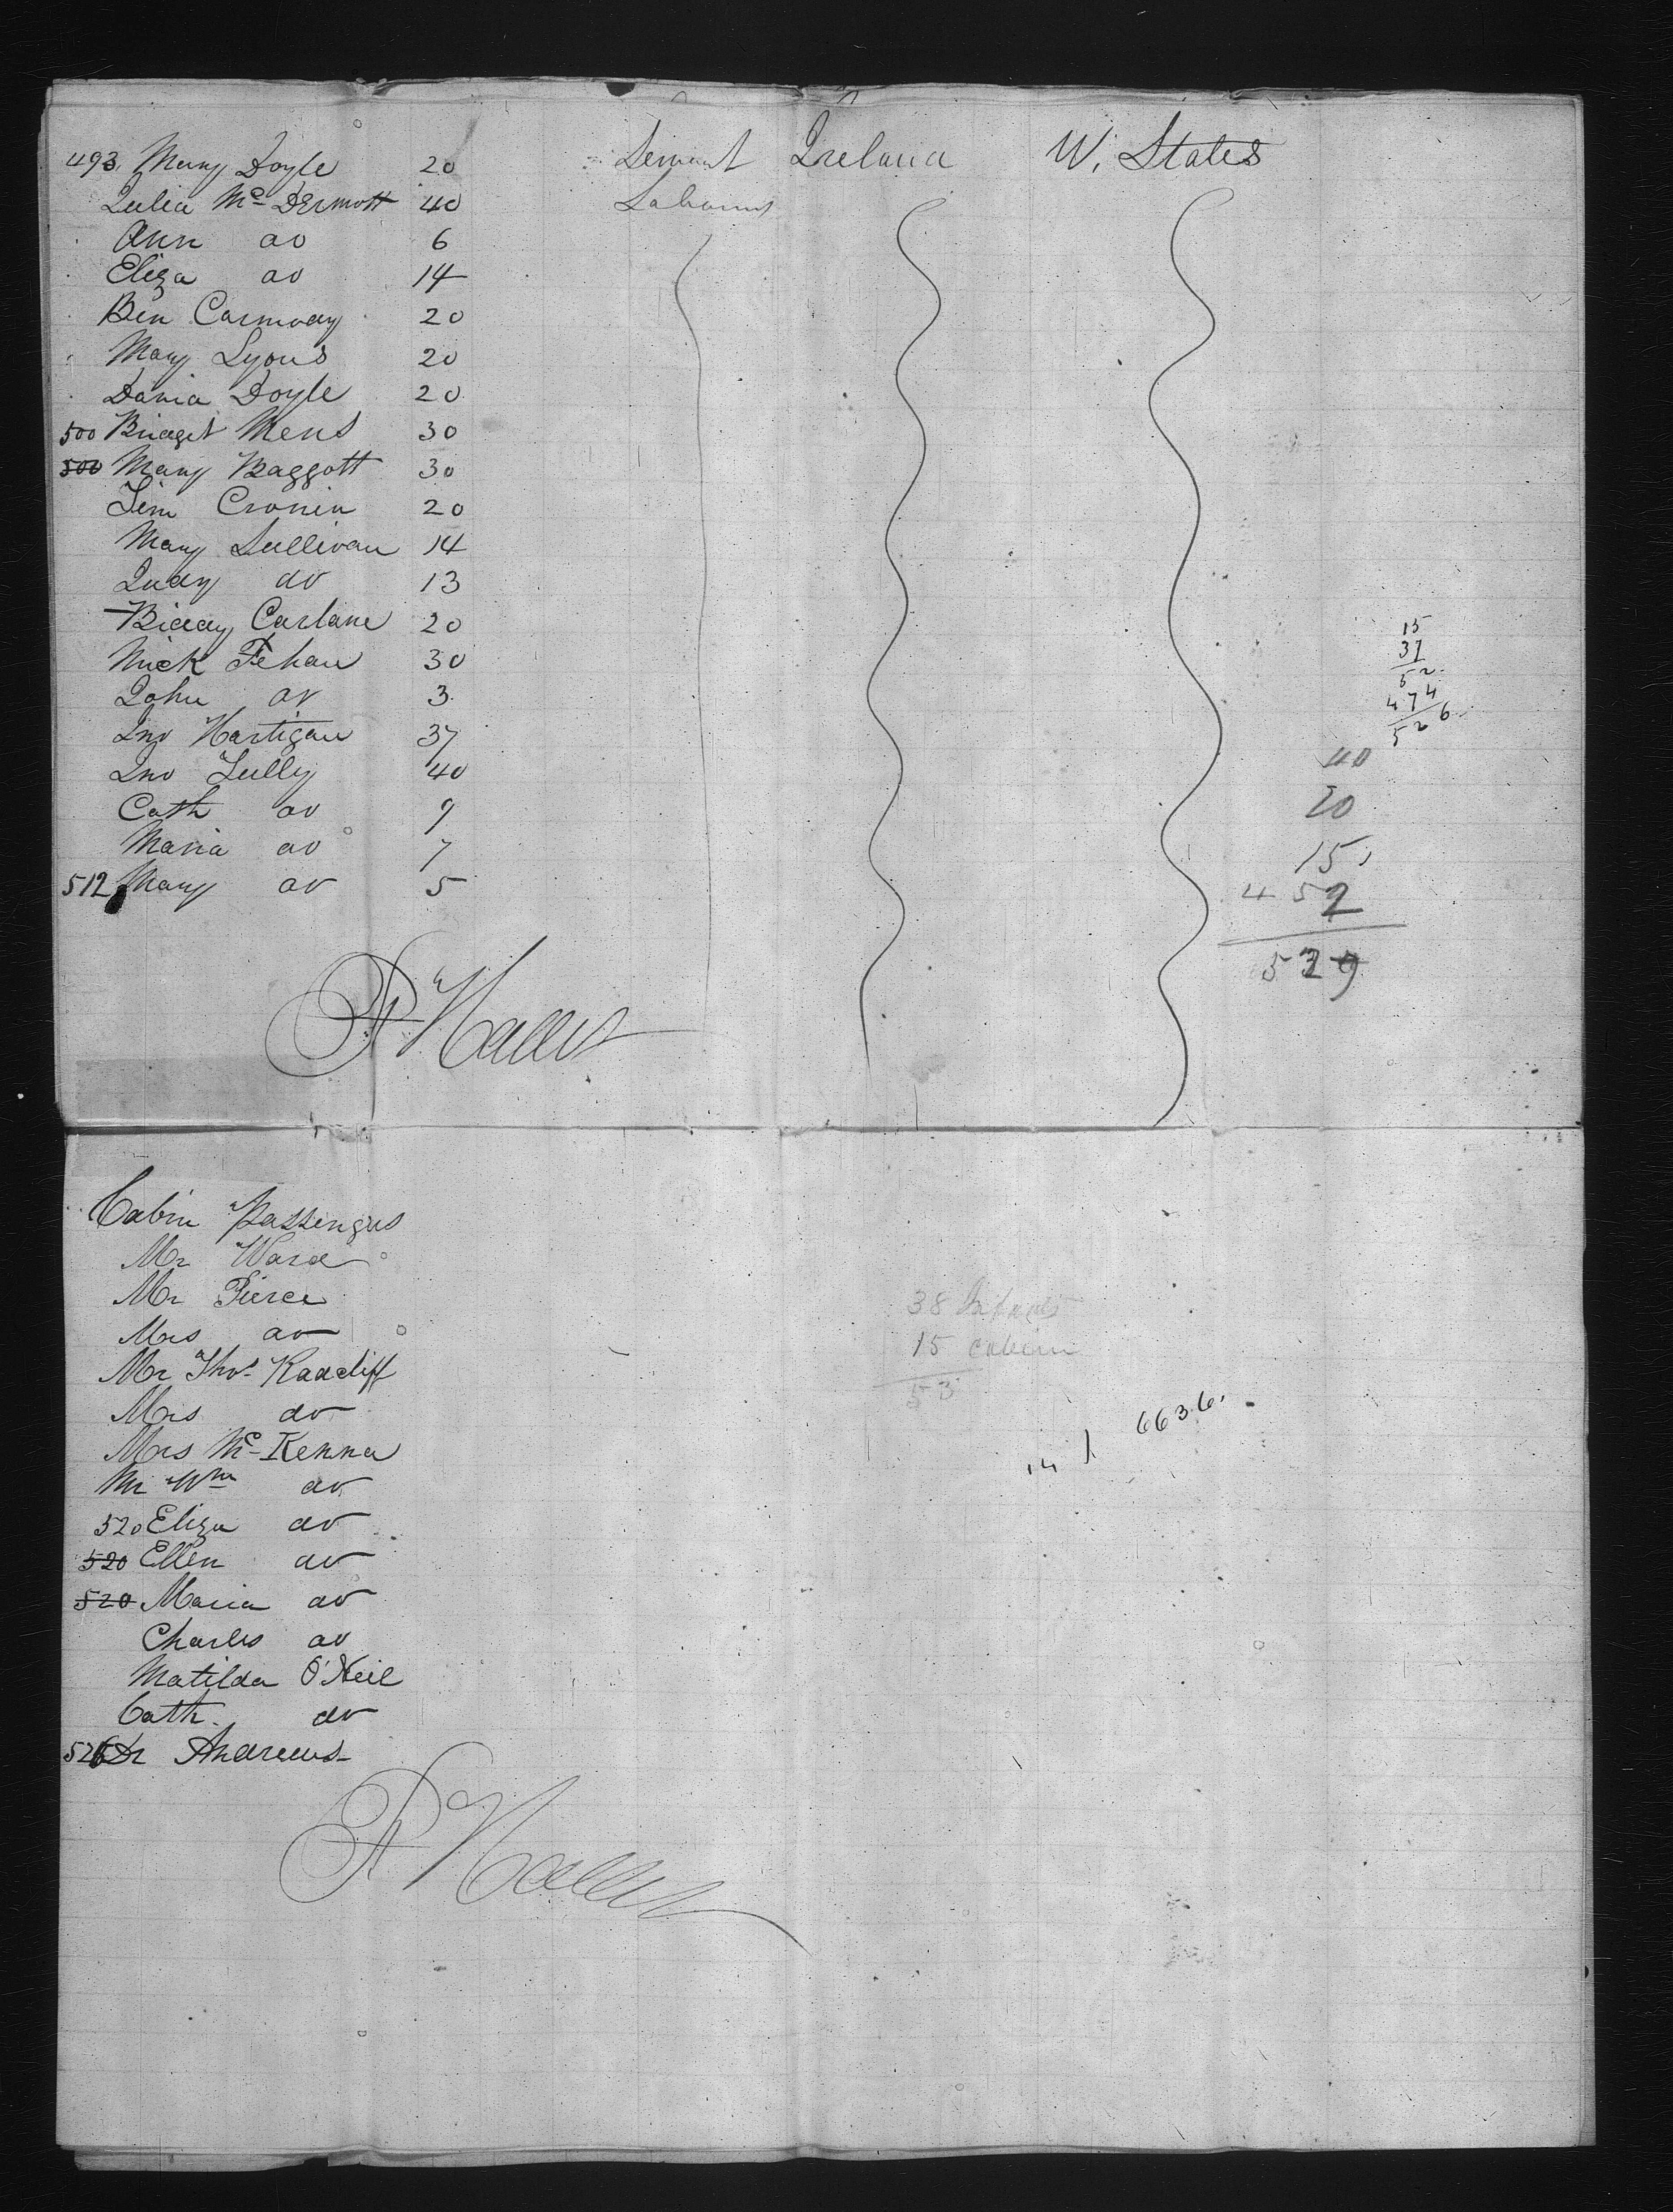 493 Mary Doyle 20 Servant Ireland U. States
Julia Mc Dermott 40 Labourers
Ann do 6
Eliza do 14
Ben Carmody 20
Mary Lyons 20
Doyle 20
500 Bridget 30
500 Mary Baggott 30
Cronin 20
Mary Sullivan 14
Judy do 13
Biddy Carlane 20
Mick Fehan 30
John do 3
Jno Hartigan 37
Jno 40
Cath do 9
Maria do 7
512 Mary do 5
15
37
52
474
526
40
20
15
452
529
P Hallet
Cabin Passengers
Mr Ward
Mr Pierce
Mrs do
Mr Thos Radcliff
Mrs do
Mrs Mc Kenna
Mr Wm do
520 Eliza do
520 Ellen do
520 Maria do
Charles do
Matilda O'Neil
Cath. do
526 Dr Andrews
38 Infants
15 cabin
53
6636
P Hallet